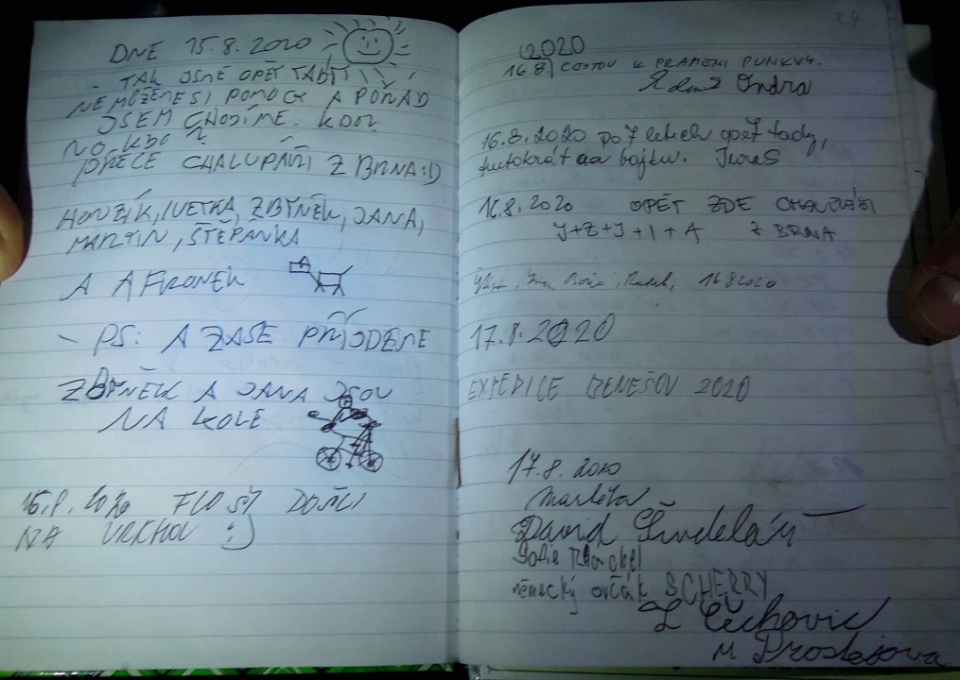 DNE 15.8.2020
TAK JSME OPĚT TADY!
NEMŮŽEME SI POMOCT A POŘÁD
SEM CHODÍME. KDO?
NO KDO?
PŘECE CHALUPÁŘI Z BRNA:D
HONZÍK, IVETKA, ZBYNĚK, JANA,
MARTIN, ŠTĚPÁNKA
A AFRONEK
- PS: A ZASE PŘIJDEME
ZBYNĚK A JANA JSOU
NA KOLE
15.8.2020 FLOSY DOŠLI
NA VRCHOL :)
24
2020
16.8. CESTOU K PRAMENI PUNKVY.
Ondra
16.8.2020 po 7 letech opět tady,
tentokrát na bajku.
16.8.2020 OPĚT ZDE CHALUPÁŘI
J+Z+J+I+A Z BRNA
16.8.2020
17.8.2020
EXPEDICE BENEŠOV 2020
17.8.2020
Markéta
David Šindelář
Sofie Ráchel
německý ovčák SCHERRY
Z Čechovic
u Prostějova